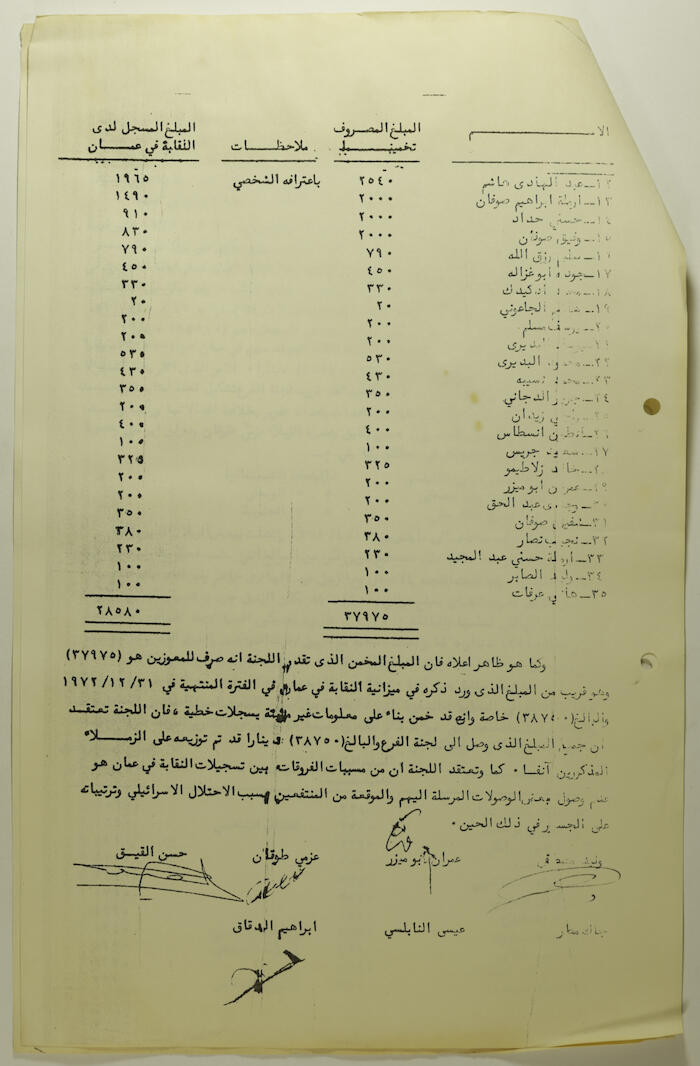 المبلغ المصروف ملاحظات المبلغ المسجل لدى
تخمينا النقابة في عمان
١٢ــ عبد الهادى هاشم ٢٥٤٠ باعترافه الشخصي ١٩٦٥
١٣ــ ارملة ابراهيم صوفان ٢٠٠٠ ١٤٩٠
١٤ــ حسني حداد ٢٠٠٠ ٩١٠
١٥ــ وفيق صوفان ٢٠٠٠ ٨٣٠
١٦ــ سليم رزق الله ٧٩٠ ٧٩٠
١٧ــ جودة ابو غزاله ٤٥٠ ٤٥٠
١٨ــ ٣٣٠ ٣٣٠
١٩ــ الجاعوني ٢٠ ٢٠
٢٠ــ يوسف مسلم ٢٠٠ ٢٠٠
٢١ــ البديرى ٢٠٠ ٢٠٠
٢٢ــ محمود البديرى ٥٣٠ ٥٣٥
٢٣ــ محمد نسيبه ٤٣٠ ٤٣٠
٢٤ــ الدجاني ٣٥٠ ٣٥٠
٢٥ــ زيدان ٢٠٠ ٢٠٠
٢٦ــ انسطاس ٤٠٠ ٤٠٠
٢٧ــ جريس ١٠٠ ١٠٠
٢٨ــ خالد زلاطيمو ٣٢٥ ٣٢٥
٢٩ــ عمران ابو ميزر ٢٠٠ ٢٠٠
٣٠ــ عبد الحق ٢٠٠ ٢٠٠
٣١ــ صوفان ٣٥٠ ٣٥٠
٣٢ــ نجيب نصار ٣٨٠ ٣٨٠
٣٣ــ ارملة حسني عبد المجيد ٢٣٠ ٢٣٠
٣٤ــ وليد الصابر ١٠٠ ١٠٠
٣٥ــ هاني عرفات ١٠٠ ١٠٠
٣٧٩٧٥ ٢٨٥٨٠
وكما هو ظاهر اعلاه فان المبلغ المخمن الذى تقدر اللجنة انه صرف للمعوزين هو (٣٧٩٧٥)
وهو قريب من المبلغ الذى ورد ذكره في ميزانية النقابة في عمان في الفترة المنتهية في ١٩٧٢/١٢/٣١
والبالغ (٣٨٧٤٠) خاصة وانه قد خمن بناء على معلومات غير مثبتة بسجلات خطية ، فان اللجنة تعتقد
ان جميع المبلغ الذى وصل الى لجنة الفرع والبالغ (٣٨٧٥٠) دينارا قد تم توزيعه على الزملاء
المذكورين آنفا ٠ كما وتعتقد اللجنة ان من مسببات الفروقات بين تسجيلات النقابة في عمان هو
عدم وصول بعض الوصولات المرسلة اليهم والموقعة من المنتفعين بسبب الاحتلال الاسرائيلي وترتيباته
على الجسر في ذلك الحين ٠
عمران ابو ميزر عزمي طوقان حسن القيق
عيسى النابلسي ابراهيم الدقاق